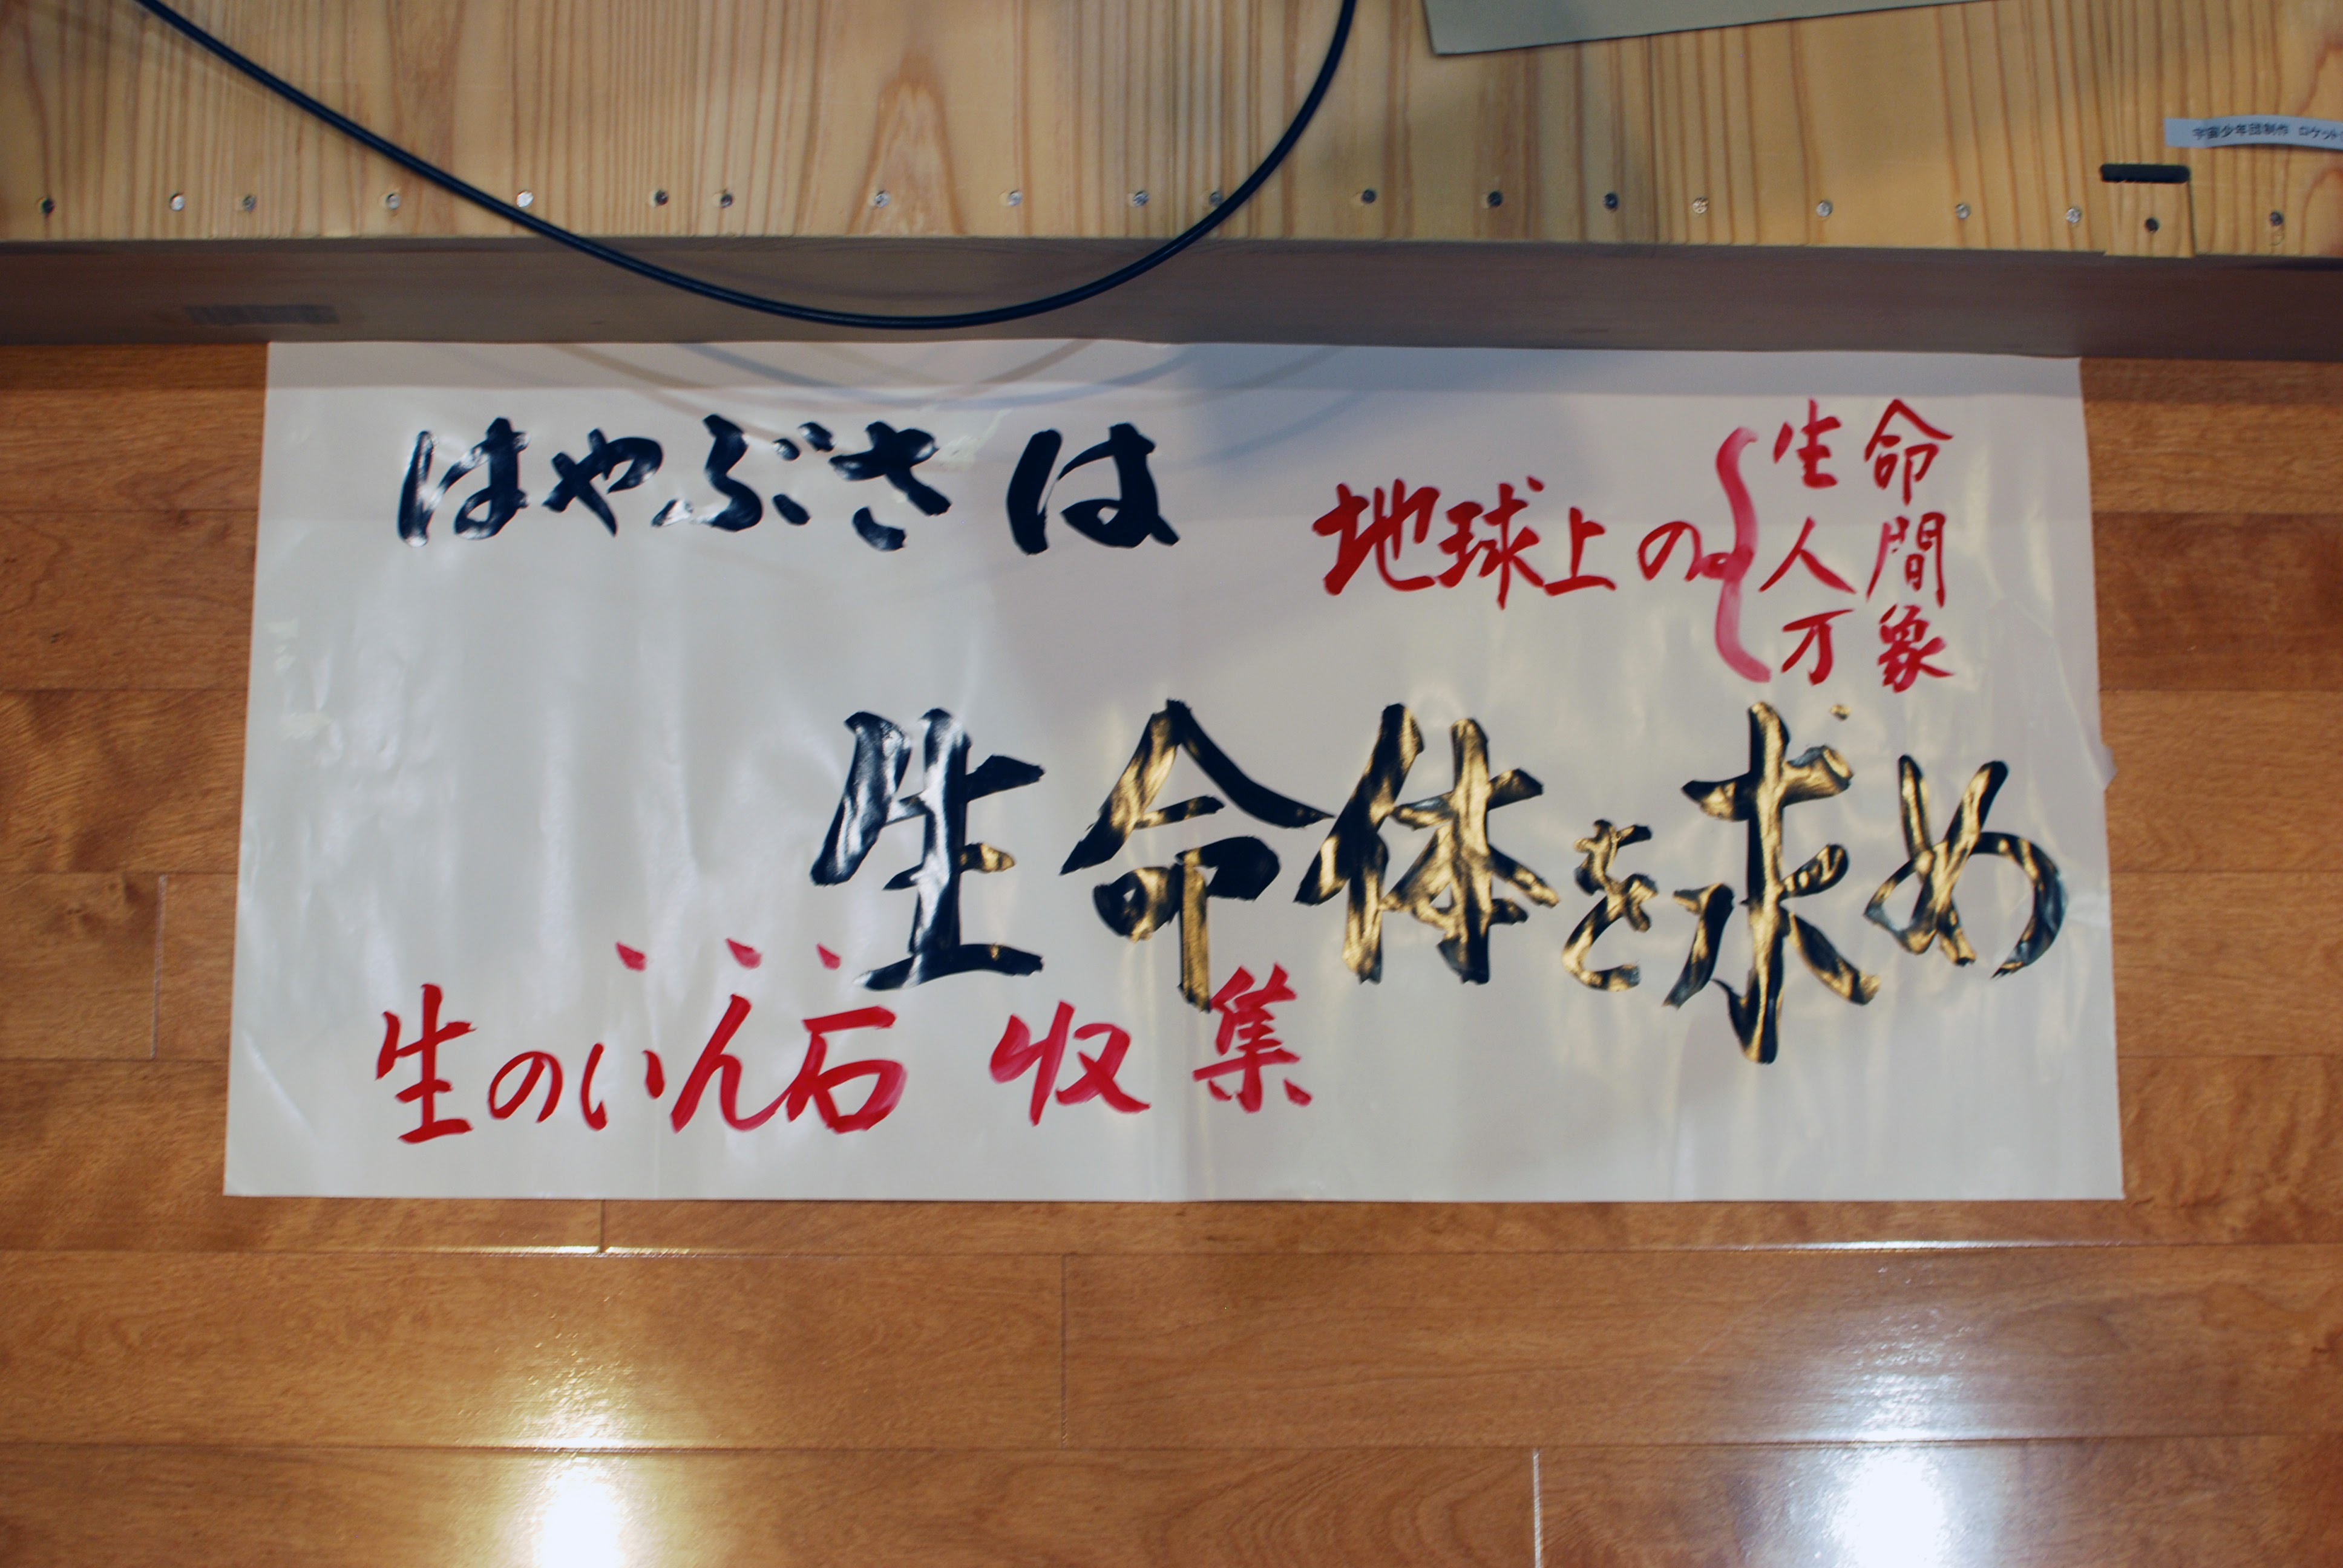 宇宙少年団制作 ロケット
はやぶさは
地球上の{生命
人間
万象
生命体を求め
生のいん石 収集